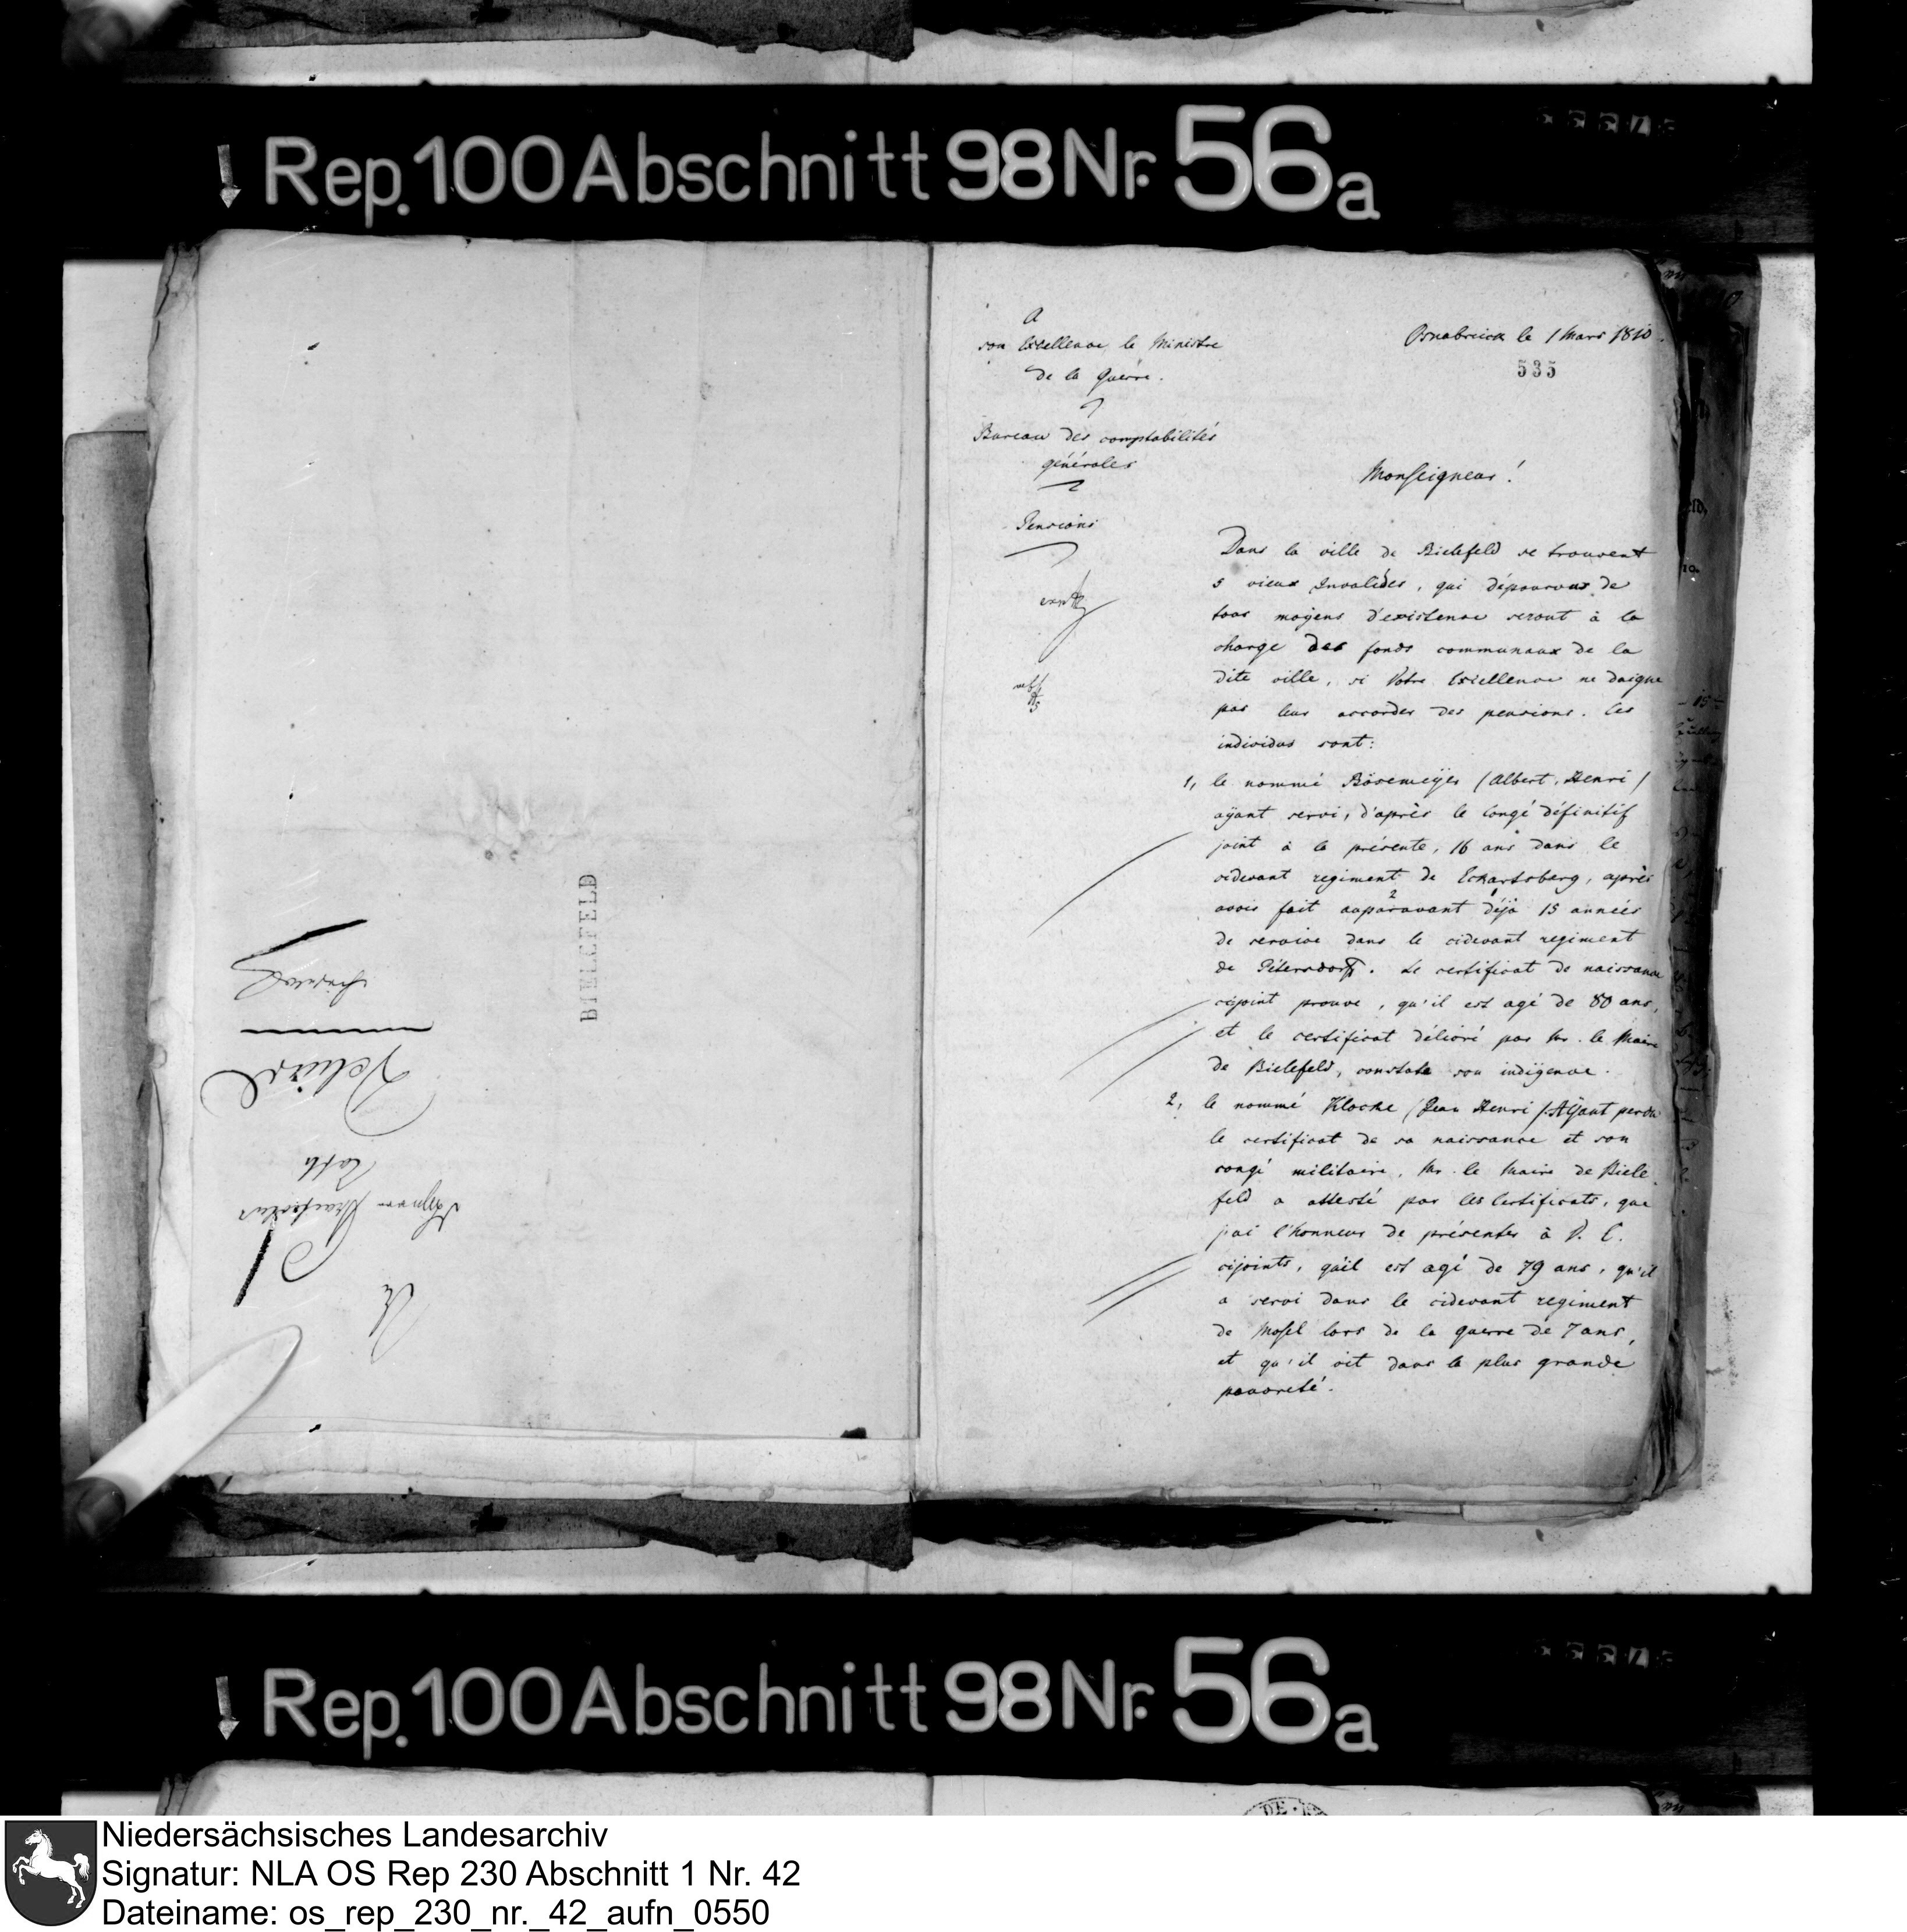 Rep. 100 Abschnitt 98 Nr. 56a
BIELEFELD
A
son Excellence le Ministre
de la Guerre.
Bureau des comptabilités
générales
Pensions
Osnabruck le 1 Mars 1810.
535
Monseigneur!
Dans la ville de Bielefeld se trouvent
5 vieux Invalides, qui dépourvus de
tous moyens d'existence seront à la
charge des fonds communaux de la
dite ville, si Votre Excellence ne daigne
pas leur accorder des pensions. Ces
individus sont:
1, le nommé Bösemeyer (Albert, Henri)
ayant servi, d'après le Congé définitif
joint à la présente, 16 ans dans le
cidevant regiment de Eckartsberg, après
avoir fait auparavant déjà 15 années
de service dans le cidevant regiment
de Petersdorff. Le certificat de naissance
cijoint prouve, qu'il est agé de 80 ans,
et le certificat délivré par Mr. le Maire
de Bielefeld, constate son indigence.
2, le nommé Klocke (Jean Henri). Ayant perdu
le certificat de sa naissance et son
congé militaire, Mr. le Maire de Biele
feld a attesté par les Certificats, que
j'ai l'honneur de présenter à V. E.
cijoints, qu'il est agé de 79 ans, qu'il
a servi dans le cidevant regiment
de Mosel lors de la guerre de 7 ans,
et qu'il vit dans la plus grande
pauvreté.
Rep. 100 Abschnitt 98 Nr. 56a
Niedersächsisches Landesarchiv
Signatur: NLA OS Rep 230 Abschnitt 1 Nr. 42
Dateiname: os_rep_230_nr._42_aufn_0550